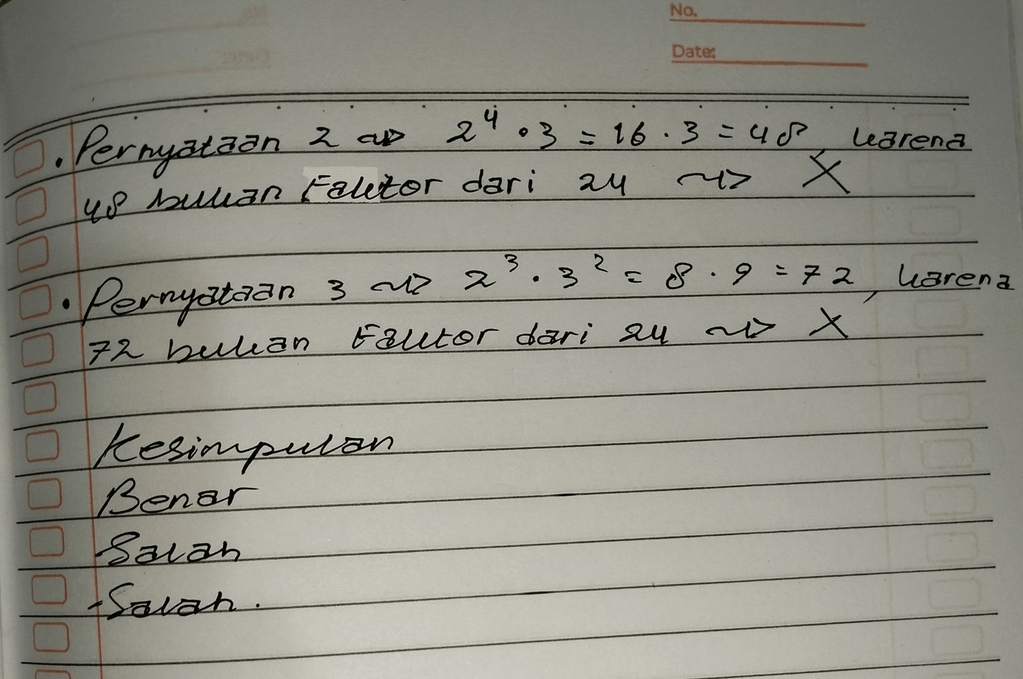 No.
Date:
. Pernyataan 2 ~> 2⁴ • 3 = 16 . 3 = 48, karena
48 bukan Faktor dari 24 ~> X
• Pernyataan 3 ~> 2³ . 3² = 8 . 9 = 72, karena
72 bukan Faktor dari 24 ~> X
Kesimpulan
Benar
-Salah
-Salah.